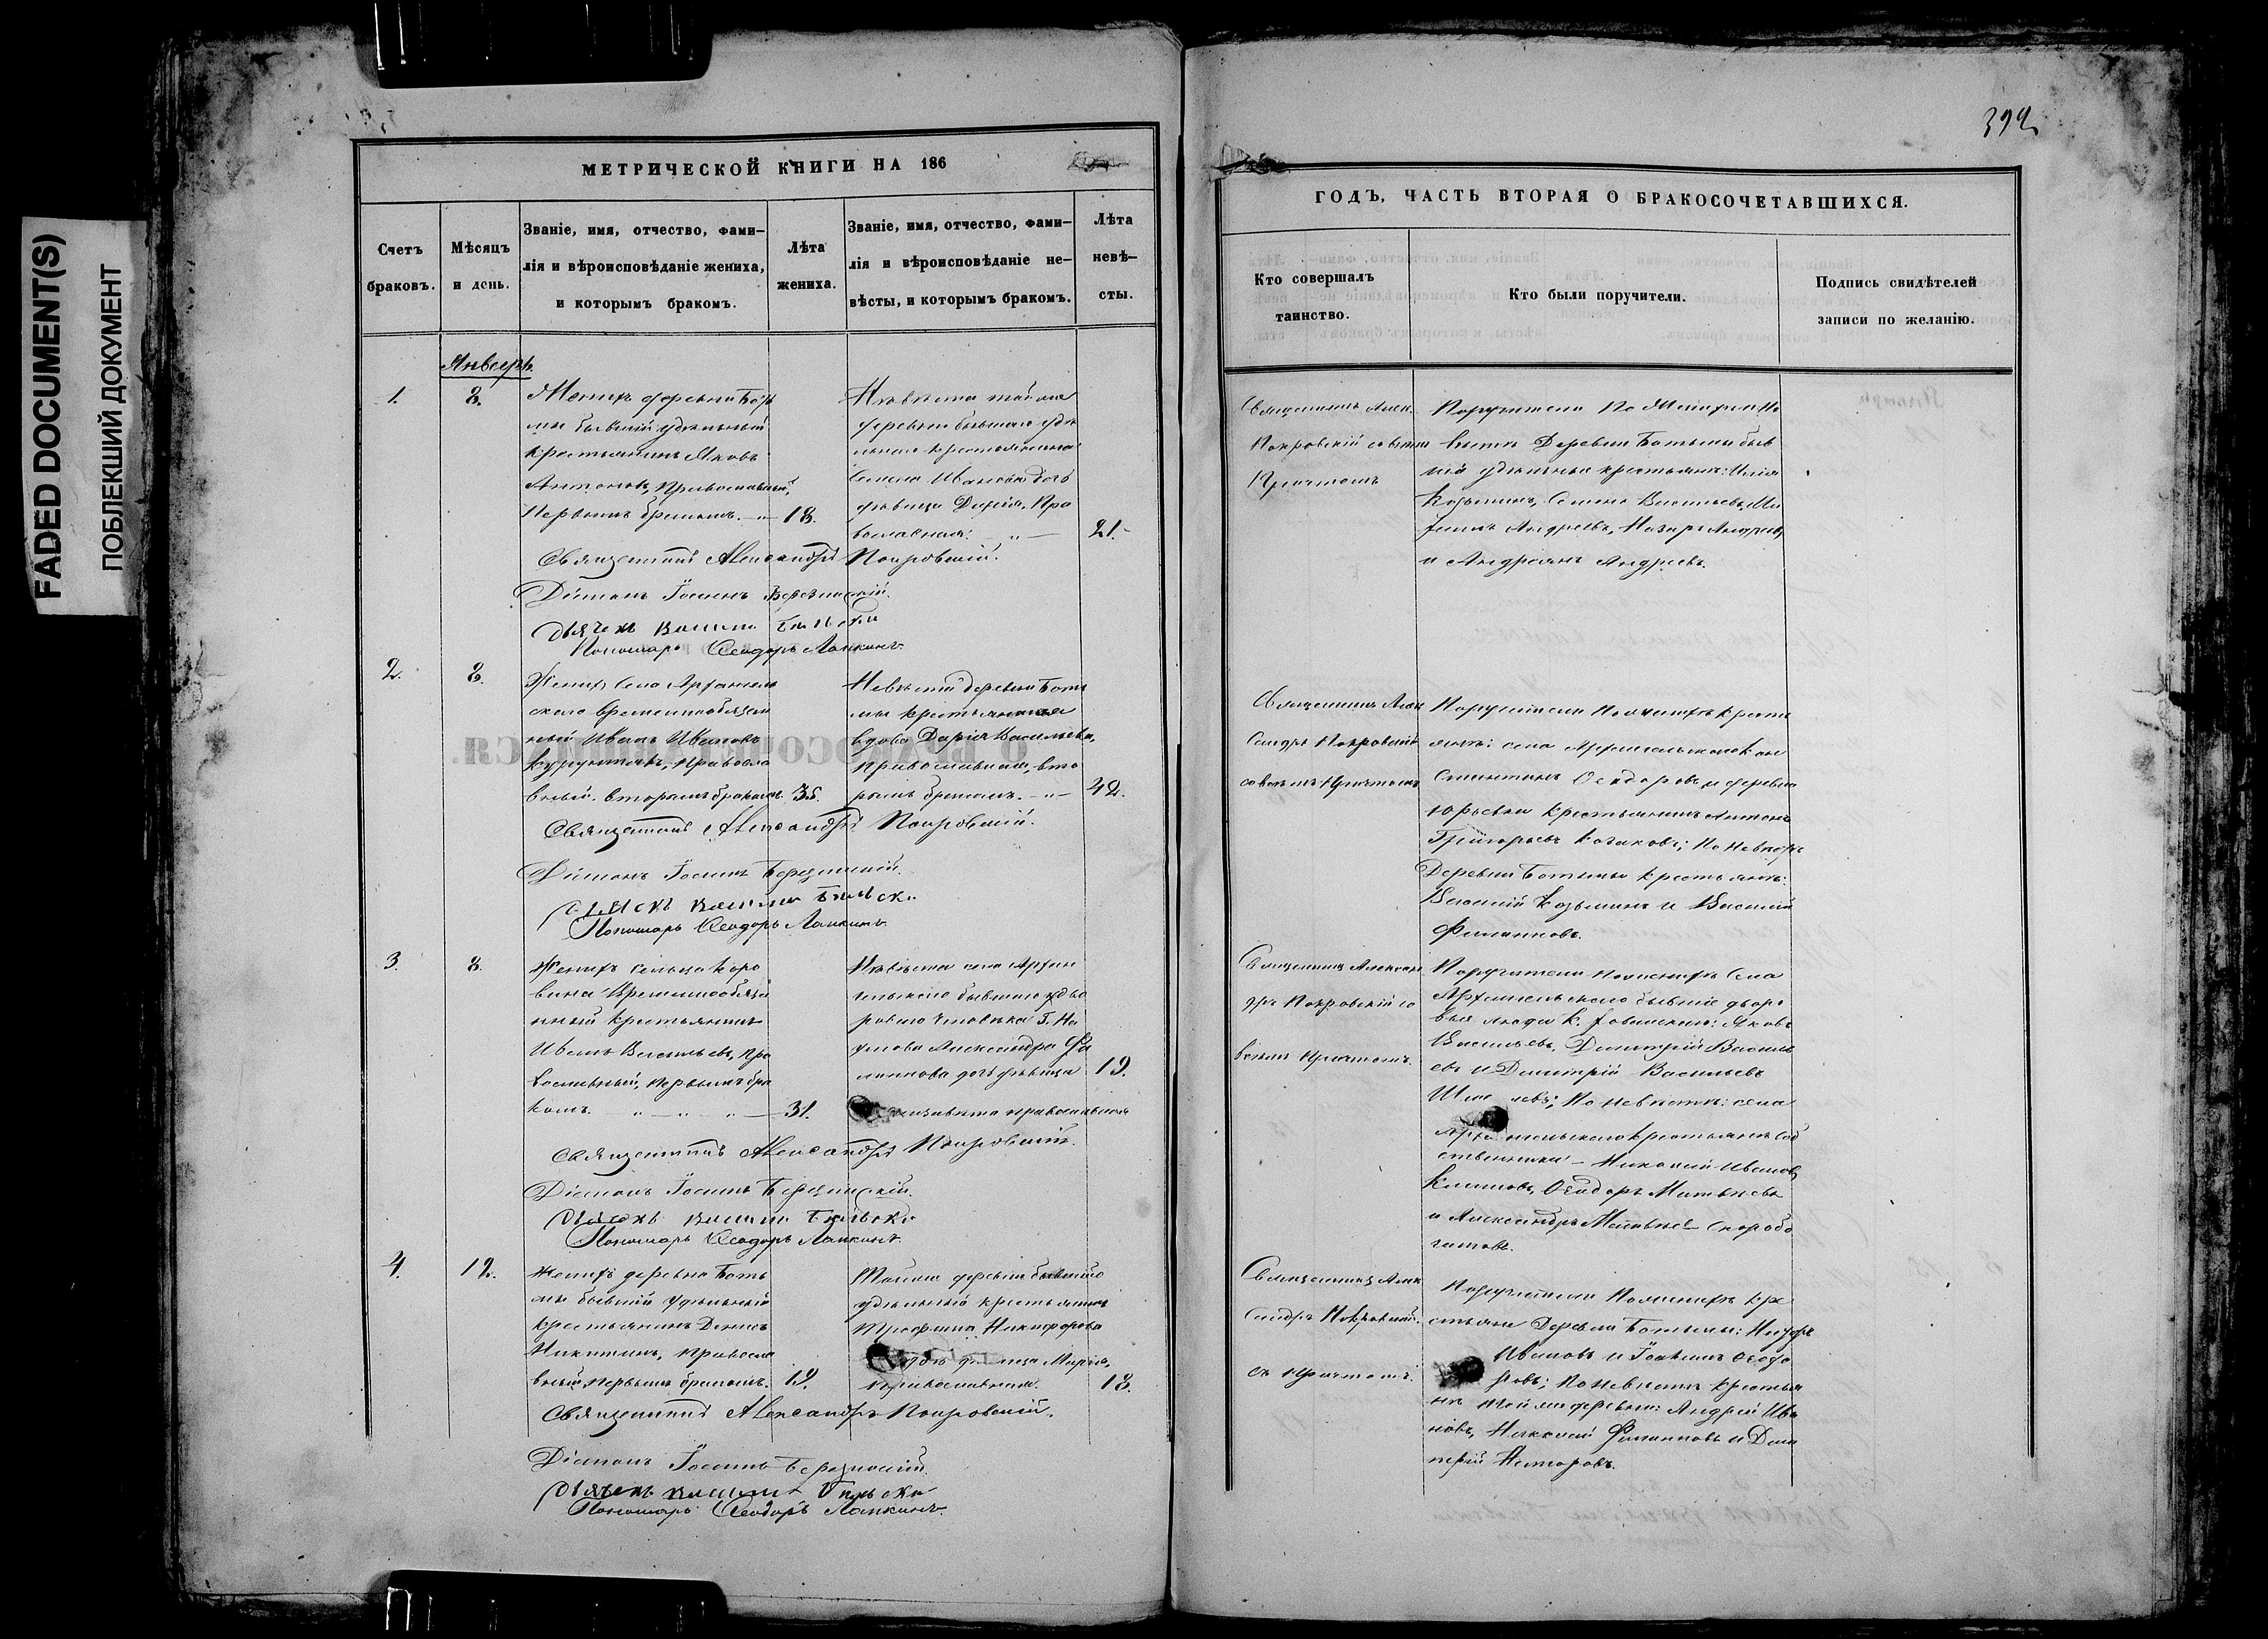 FADED DOCUMENT(S)
ПОБЛЕКШИЙ ДОКУМЕНТ
МЕТРИЧЕСКОЙ КНИГИ НА 186
Счетъ браковъ.
Мѣсяцъ и день.
Званіе, имя, отчество, фами-
лія и вѣроисповѣданіе жениха,
и которымъ бракомъ.
Лѣта жениха.
Званіе, имя, отчество, фами-
лія и вѣроисповѣданіе не-
вѣсты, и которымъ бракомъ.
Лѣта
невѣ-
сты.
Январь.
1.
8.
Женихъ деревни Боть
мы бывшій удѣльный
крестьянинъ Яковъ
Антоновъ, Православный,
Первымъ бракомъ. 18.
Невѣста
деревни бывшаго удѣ
льнаго крестьянина
Семена Иванова дочь
дѣвица Дарія, Пра
вославная. 21.
Священникъ Александръ Покровскій.
Діаконъ Іоаннъ Березинскій.
Дьячекъ Василій
Пономарь Ѳеодоръ Лапкинъ.
2.
8.
Женихъ Села Архангель
скаго временнообязан
ный Иванъ Ивановъ
православ
ный. вторымъ бракомъ. 35.
Невѣста деревни Боть
мы крестьянская
вдова Дарія Васильева,
православная, вто
рымъ бракомъ. 42.
Священникъ Александръ Покровскій.
Діаконъ Іоаннъ Березинскій.
Дьячекъ Василій
Пономарь Ѳеодоръ Лапкинъ.
3.
8.
Женихъ сельца Коро
вина Временнообяза
нный крестьянинъ
Иванъ Васильевъ, пра
вославный, первымъ бра
комъ. 31.
Невѣста села Архан
гельскаго бывшаго дво
роваго человѣка Г. На
умова Александра Фи
липпова дочь дѣвица 19.
Елизавета православная
Священникъ Александръ Покровскій.
Діаконъ Іоаннъ Березинскій.
Дьячекъ Василій
Пономарь Ѳеодоръ Лапкинъ.
4.
12.
Женихъ деревни Боть
мы бывшій удѣльный
крестьянинъ Денисъ
Никитинъ, Правосла
вный, первымъ бракомъ. 19.
деревни бывшаго
удѣльнаго крестьянина
Трофима Никифорова
дочь дѣвица Марія,
православная. 18.
Священникъ Александръ Покровскій.
Діаконъ Іоаннъ Березинскій.
Дьячекъ Василій
Пономарь Ѳеодоръ Лапкинъ.
392
ГОДЪ, ЧАСТЬ ВТОРАЯ О БРАКОСОЧЕТАВШИХСЯ.
Кто совершалъ
таинство.
Кто были поручители.
Подпись свидѣтелей
записи по желанію.
Священникъ Алек.
Покровскій со всѣмъ
Причтомъ
Поручители По Женихѣ и Не
вѣстѣ Деревни Ботьмы быв
шіе удѣльные крестьяне: Илія
Козьминъ, Семенъ Васильевъ,
Андреевъ, Назаръ Андреевъ,
и Андреянъ Андреевъ.
Священникъ Алек
сандръ Покровскій
со всѣмъ Причтомъ
Поручители По женихѣ кресть
яне: села Архангельскаго Кон
стантинъ Ѳеодоровъ и деревни
Юрьевки крестьянинъ Антонъ
Григорьевъ Казаковъ; По Невѣстѣ
Деревни Ботьмы крестьяне:
Василій Козьминъ и Василій
Филипповъ.
Священникъ Алексан
дръ Покровскій со
всѣмъ Причтомъ.
Поручители По женихѣ Села
Архангельскаго бывшіе дворо
вые люди Яковъ
Васильевъ, Димитрій Василь
евъ и Димитрій Васильевъ
По невѣстѣ: села
Архангельскаго крестьяне соб
ственники – Николай Ивановъ
Климовъ, Ѳеодоръ Матвѣевъ
и Александръ Матвѣевъ Скоробо
гатовъ.
Священникъ Алек
сандръ Покровскій.
съ Причтомъ.
Поручители По женихѣ кре
стьяне Деревни Ботьмы:
Ивановъ и Іоакимъ Ѳеодо
ровъ; По невѣстѣ крестья
не той же деревни: Андрей Ива
новъ, Николай Филипповъ и Дми
трій Несторовъ.